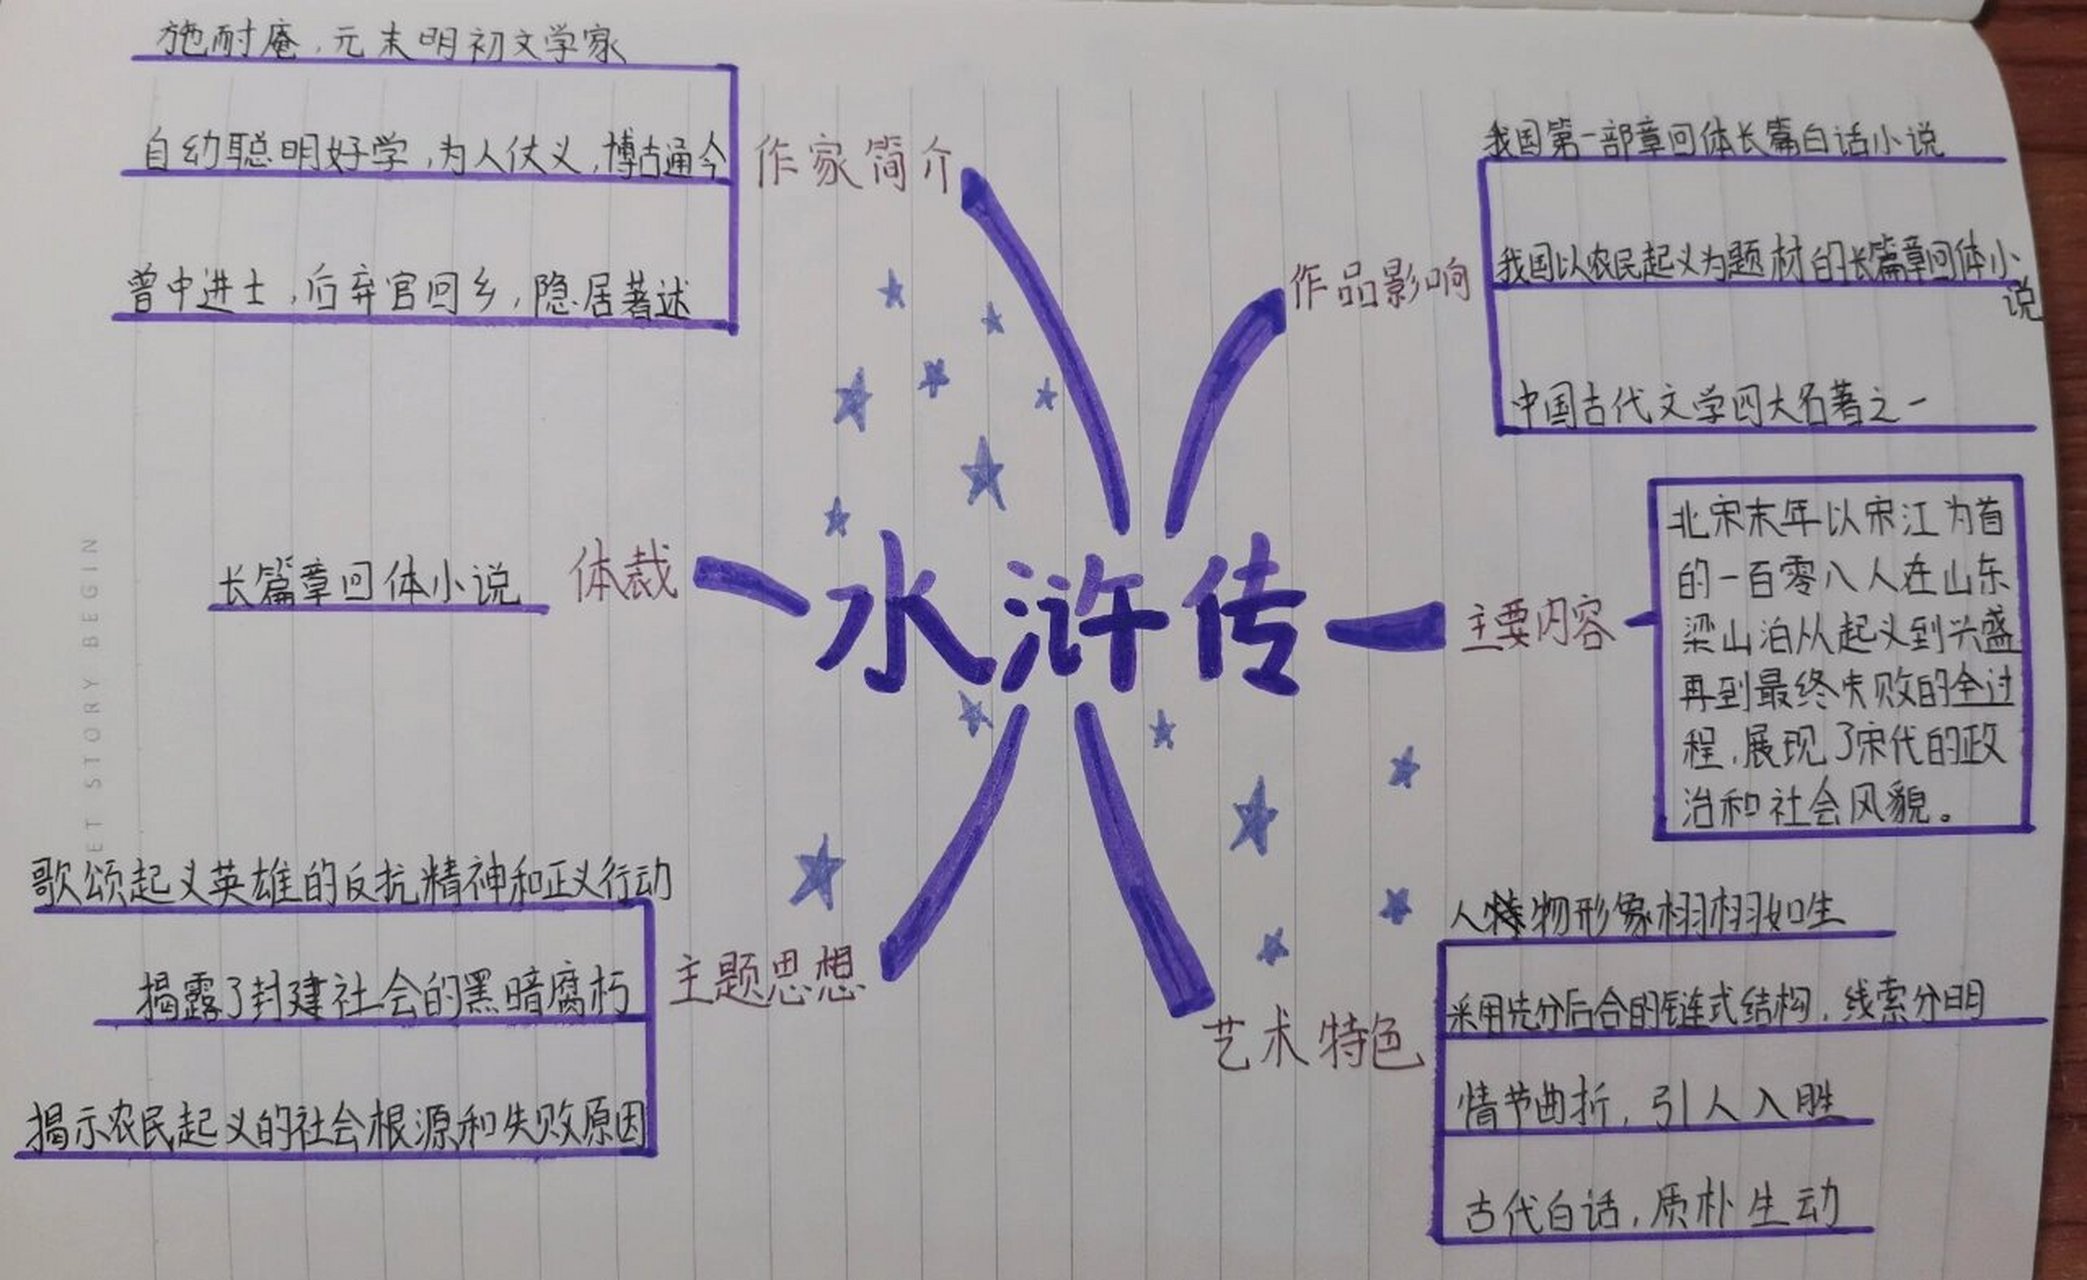 施耐庵,元末明初文学家
自幼聪明好学,为人仗义,博古通今
曾中进士,后弃官回乡,隐居著述
作家简介
我国第一部章回体长篇白话小说
我国以农民起义为题材的长篇章回体小
说
中国古代文学四大名著之一
作品影响
长篇章回体小说
体裁
水浒传
主要内容
北宋末年以宋江为首
的一百零八人在山东
梁山泊从起义到兴盛
再到最终失败的全过
程,展现了宋代的政
治和社会风貌。
ET STORY BEGIN
歌颂起义英雄的反抗精神和正义行动
揭露了封建社会的黑暗腐朽
揭示农民起义的社会根源和失败原因
主题思想
艺术特色
人物形象栩栩如生
采用先分后合的链式结构,线索分明
情节曲折,引人入胜
古代白话,质朴生动